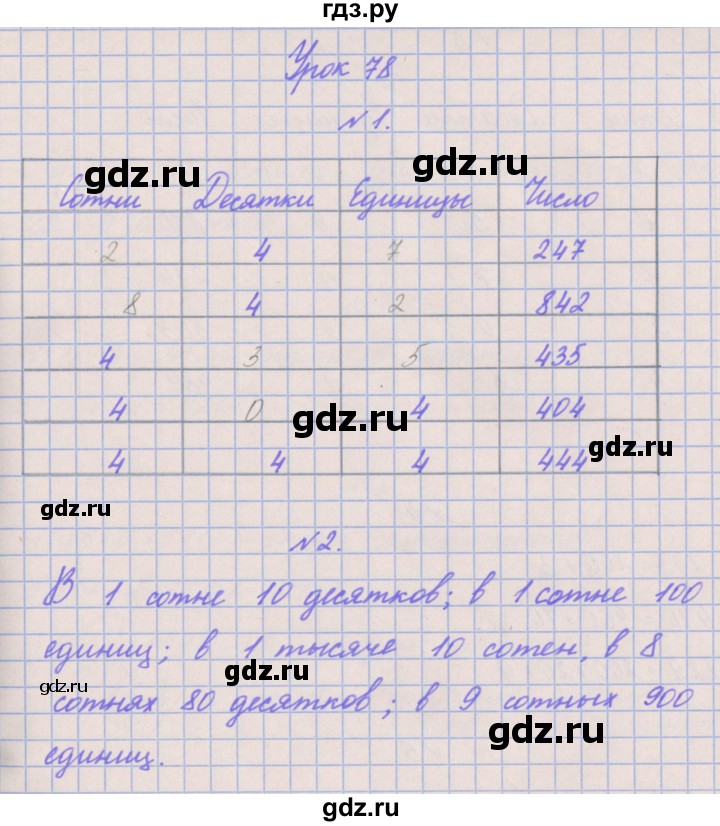 гдз.ру
Урок 78
№1.
gdz.ru
gdz.ru
Сотни Десятки Единицы Число
2 4 7 247
8 4 2 842
4 3 5 435
4 0 4 404
gdz.ru
gdz.ru
4 4 4 444
gdz.ru
№2.
В 1 сотне 10 десятков; в 1 сотне 100
единиц; в 1 тысяче 10 сотен, в 8
gdz.ru
gdz.ru
сотнях 80 десятков; в 9 сотных 900
gdz.ru
единиц.
gdz.ru